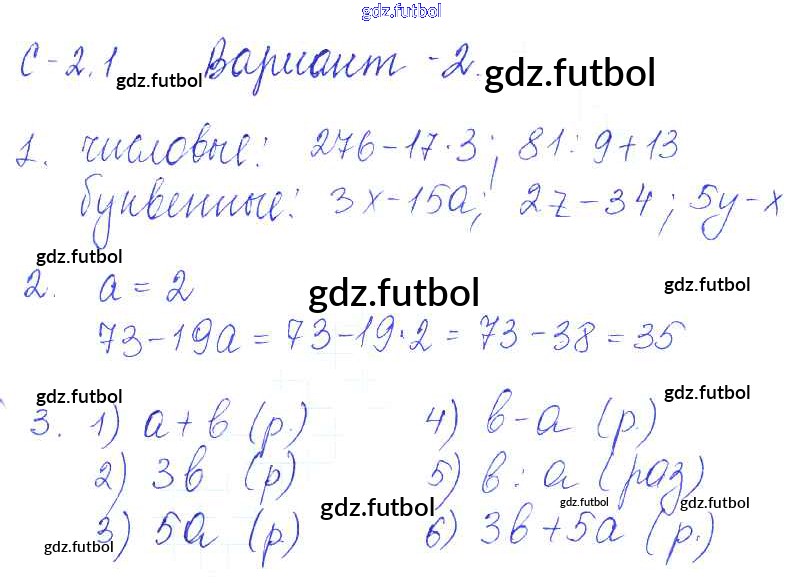 gdz.futbol
С-2.1 gdz.futbol Вариант -2. gdz.futbol
1. числовые: 276-17·3; 81:9+13
буквенные: 3x-15a; 2z-34; 5y-x
gdz.futbol
2. a = 2 gdz.futbol gdz.futbol
73-19a = 73-19·2 = 73-38 = 35
gdz.futbol gdz.futbol
3. 1) a+b (р.) 4) b-a (р.)
2) 3b (р) 5) b:a (раз)
gdz.futbol gdz.futbol gdz.futbol
3) 5a (р.) 6) 3b+5a (р.)
gdz.futbol